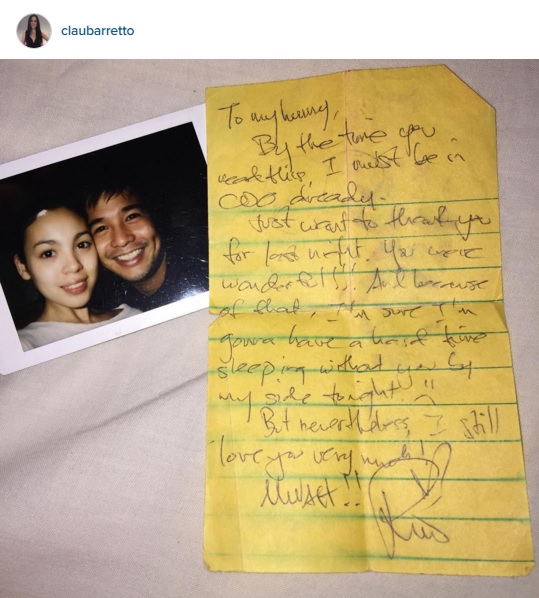 claubarretto
To my hunny,
By the time you
read this, I must be in
CDO already.
Just want to thank you
for last night. You were
wonderful!!! And because
of that, I'm sure I'm
gonna have a hard time
sleeping without you by
my side tonight!
But nevertheless, I still
love you very much!
MWAH!!